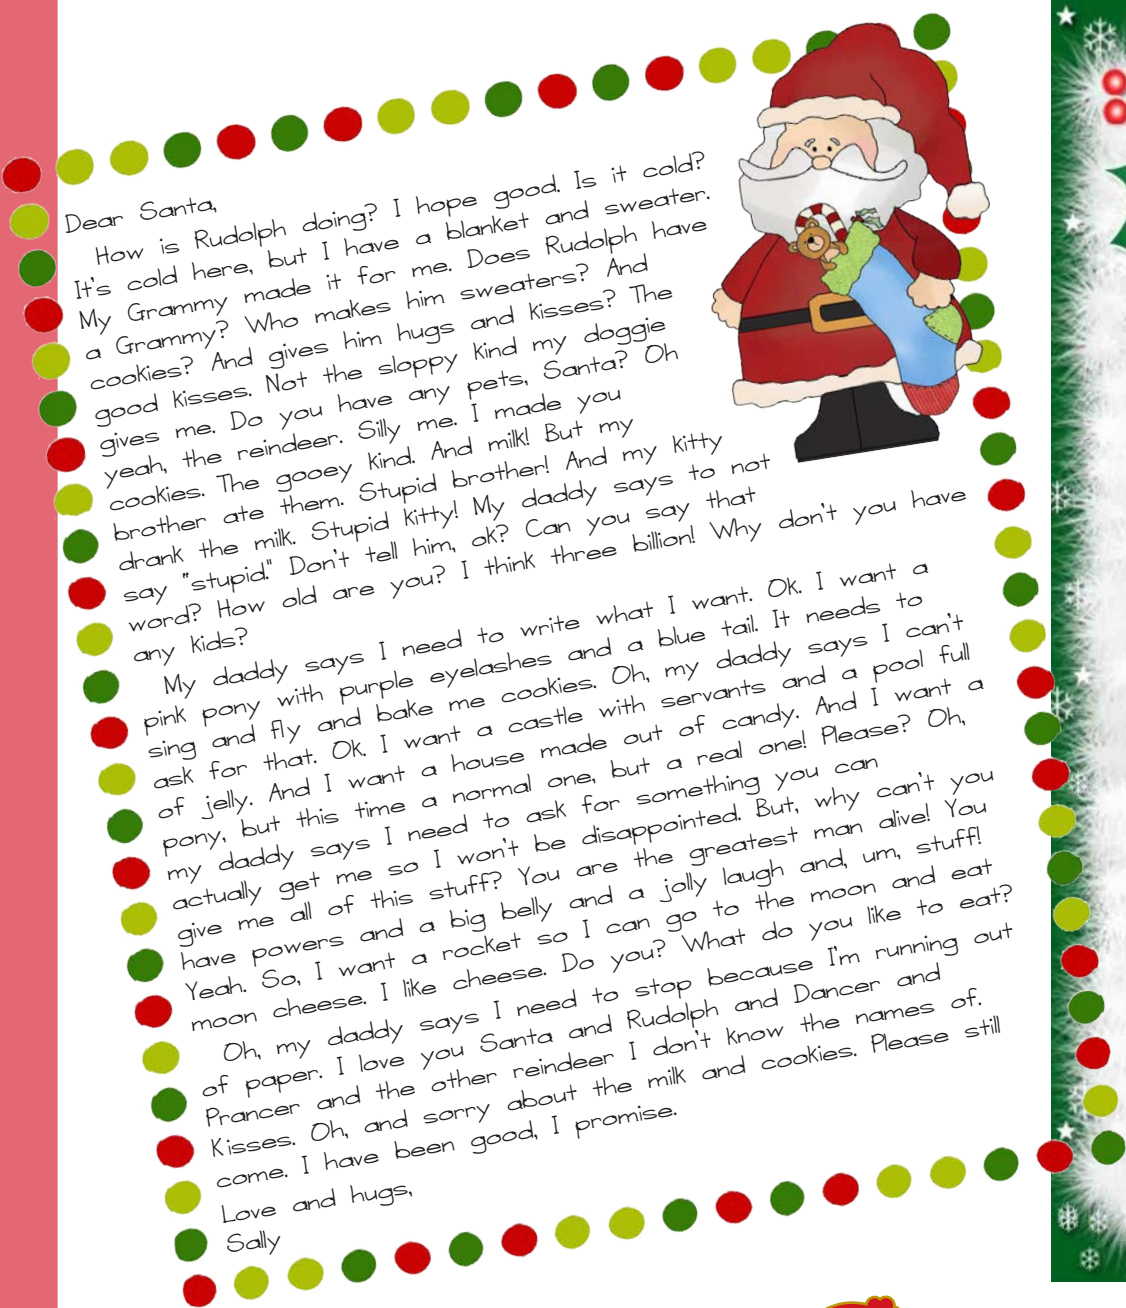 Dear Santa,
How is Rudolph doing? I hope good. Is it cold?
It's cold here, but I have a blanket and sweater.
My Grammy made it for me. Does Rudolph have
a Grammy? Who makes him sweaters? And
cookies? And gives him hugs and kisses? The
good kisses. Not the sloppy kind my doggie
gives me. Do you have any pets, Santa? Oh
yeah, the reindeer. Silly me. I made you
cookies. The gooey kind. And milk! But my
brother ate them. Stupid brother! And my kitty
drank the milk. Stupid kitty! My daddy says to not
say "stupid." Don't tell him, ok? Can you say that
word? How old are you? I think three billion! Why don't you have
any kids?
My daddy says I need to write what I want. Ok. I want a
pink pony with purple eyelashes and a blue tail. It needs to
sing and fly and bake me cookies. Oh, my daddy says I can't
ask for that. Ok. I want a castle with servants and a pool full
of jelly. And I want a house made out of candy. And I want a
pony, but this time a normal one, but a real one! Please? Oh,
my daddy says I need to ask for something you can
actually get me so I won't be disappointed. But, why can't you
give me all of this stuff? You are the greatest man alive! You
have powers and a big belly and a jolly laugh and, um, stuff!
Yeah. So, I want a rocket so I can go to the moon and eat
moon cheese. I like cheese. Do you? What do you like to eat?
Oh, my daddy says I need to stop because I'm running out
of paper. I love you Santa and Rudolph and Dancer and
Prancer and the other reindeer I don't know the names of.
Kisses. Oh, and sorry about the milk and cookies. Please still
come. I have been good, I promise.
Love and hugs,
Sally